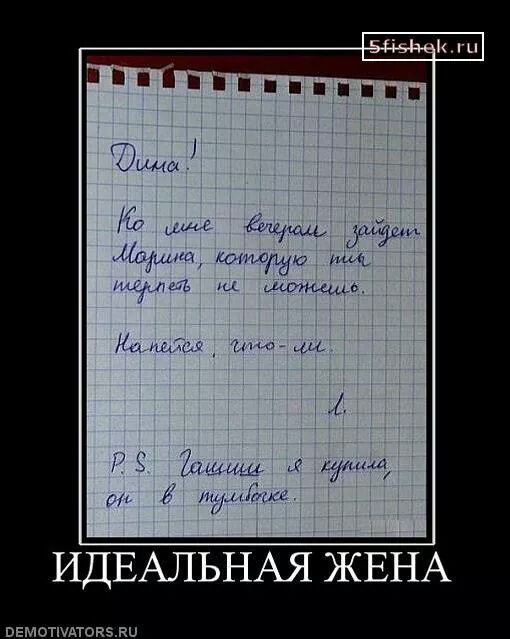 5fishek.ru
Дима!
Ко мне вечером зайдет
Марина, которую ты
терпеть не можешь.
Напейся, что-ли.
Л.
P.S. Гашиш я купила,
он в тумбочке.
ИДЕАЛЬНАЯ ЖЕНА
DEMOTIVATORS.RU